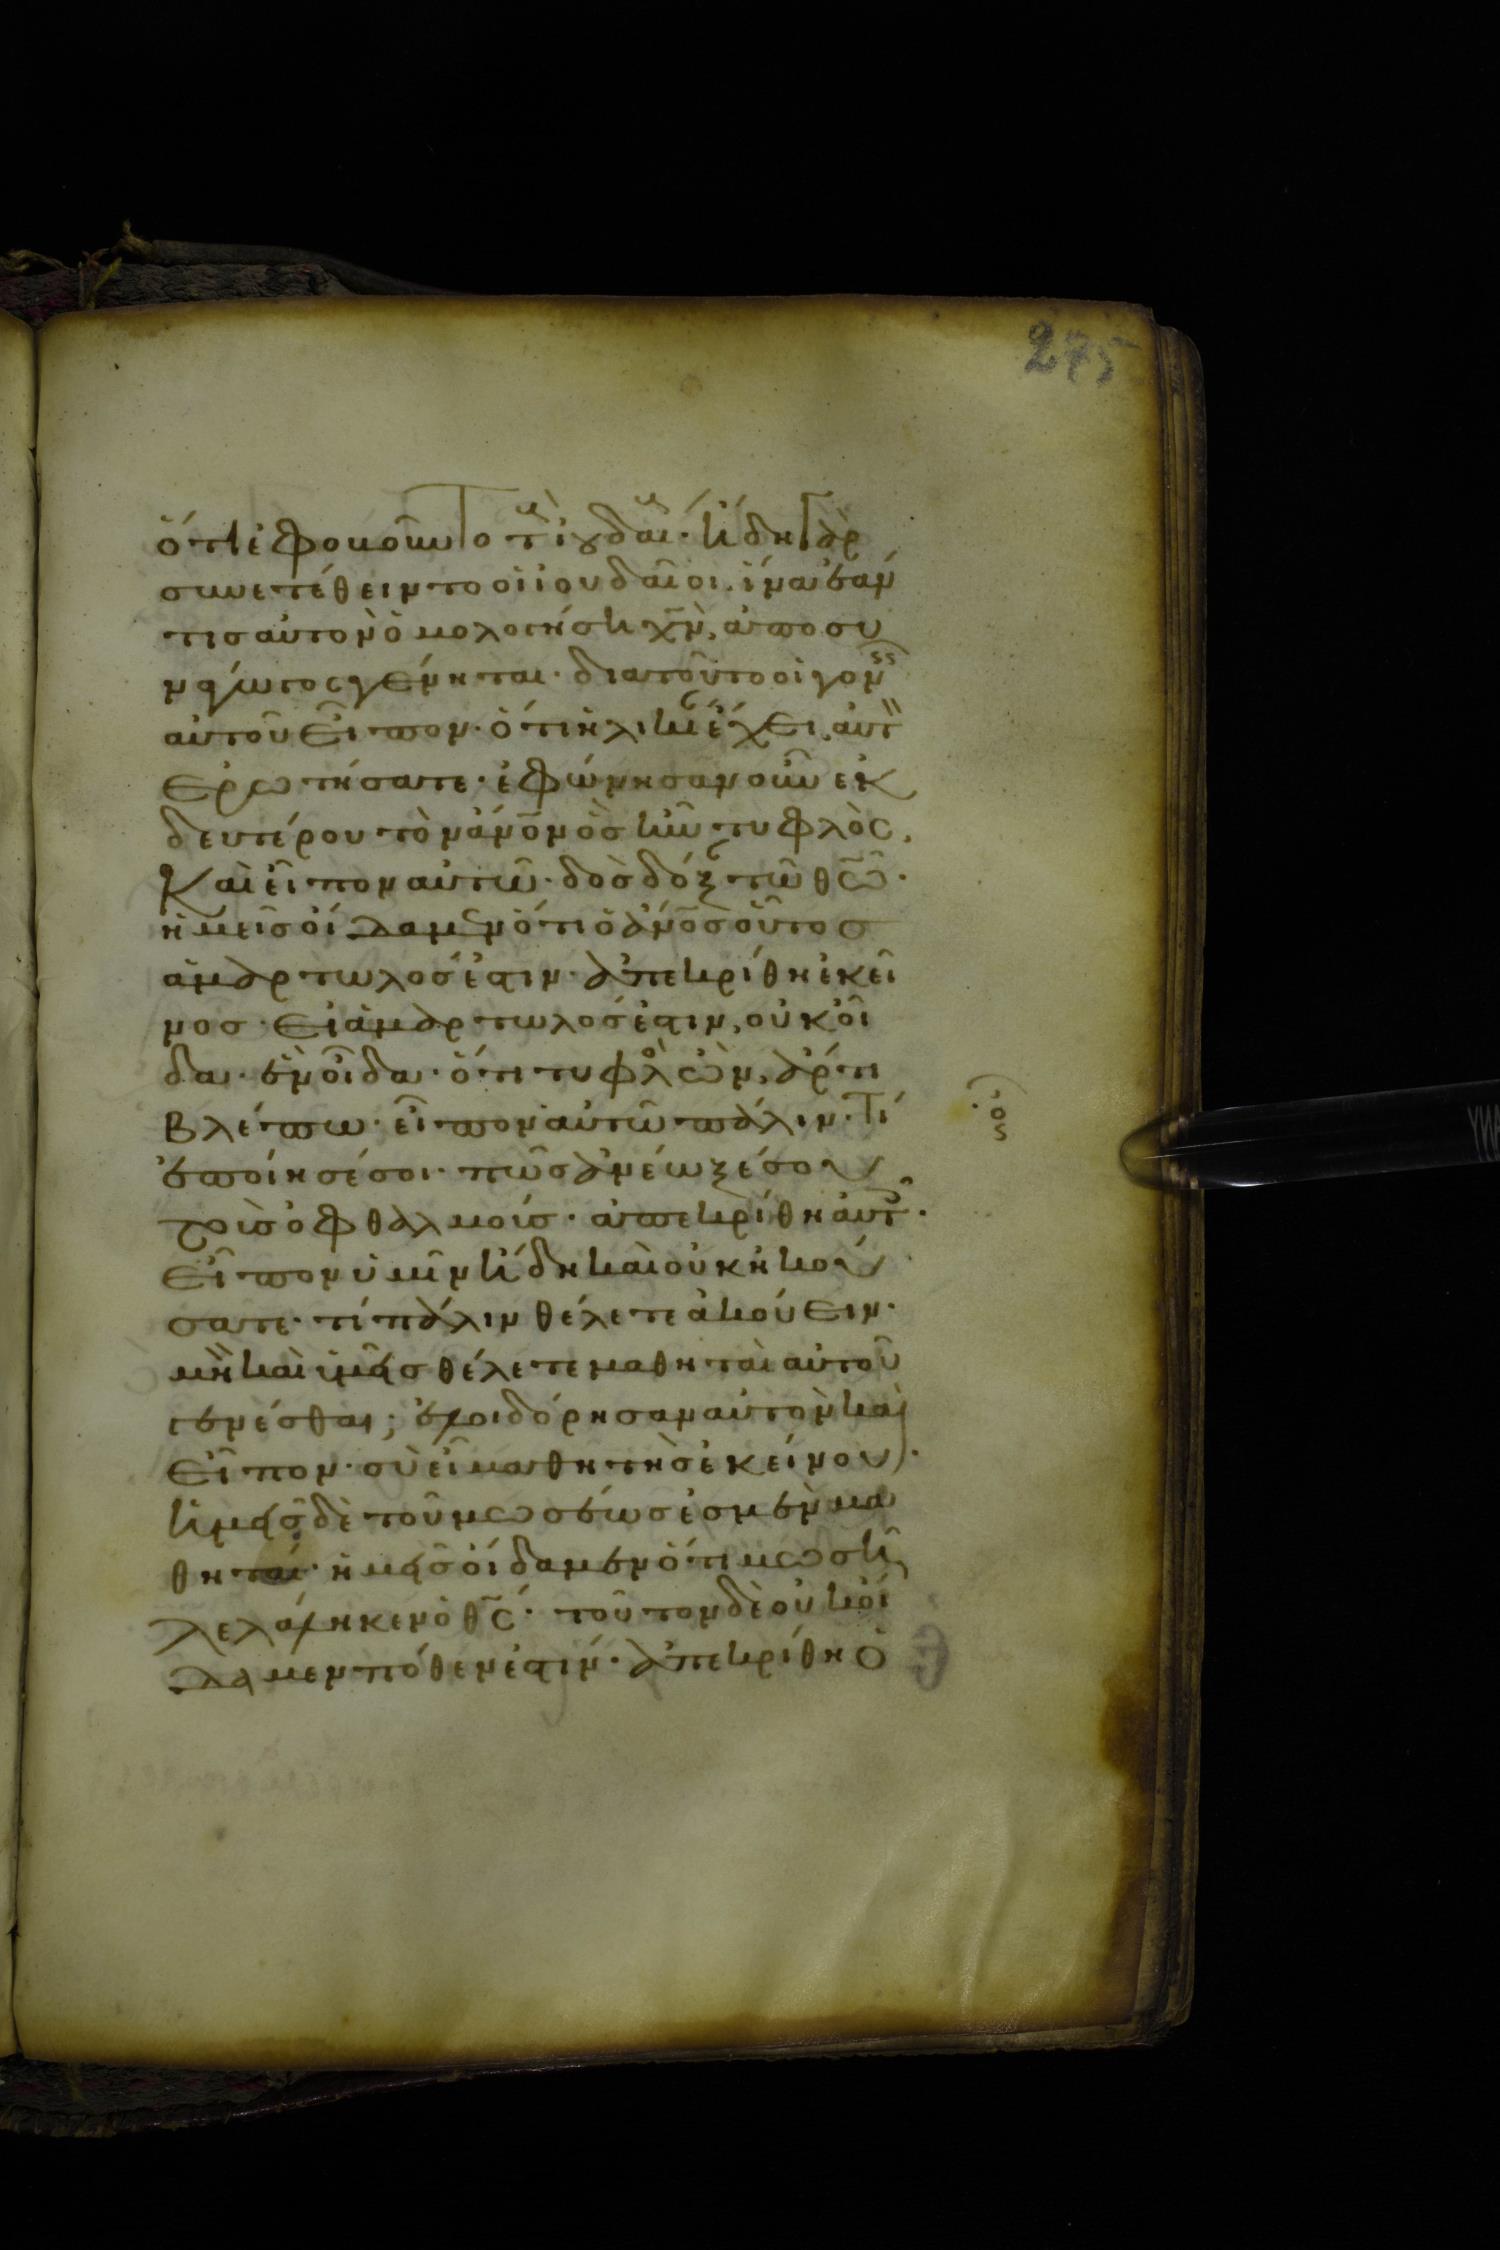 275
ὅτι ἐφοβοῦντο τ ἰουδαί· ἤδη γὰρ
συνετέθειντο οἱ ἰουδαῖοι. ἵνα ἐάν
τις αὐτὸν ὁμολογήση χν, ἀποσυ
νάγωγος γένηται· διατοῦτο οἱ γον
αὐτοῦ εἶπον· ὅτι ἡλικ ἔχει, αὐτ
ἐρωτήσατε· ἐφώνησαν οὖν ἐκ
δευτέρου τὸν ἄνον ὃς ἦν τυφλὸς,
καὶ εἶπον αὐτῶ· δὸς δόξ τῶ θω·
ἡμεῖς οἴδαμεν ὅτι ὁ ἄνος οὗτος
ἁμαρτωλός ἐστιν· ἀπεκρίθη ἐκεῖ
νος· εἰ ἁμαρτωλός ἐστιν, οὐκ οἶ
δα· ἓν οἶδα· ὅτι τυφλὸ ὢν, ἄρτι
βλέπω· εἶπον αὐτῶ πάλιν· τί
ἐποίησέ σοι· πῶς ἀνέωξέ σου
τοὺς ὀφθαλμούς· ἀπεκρίθη αὐτ·
εἶπον ὑμῖν ἤδη καὶ οὐκ ἠκού
σατε· τί πάλιν θέλετε ἀκούειν·
μὴ καὶ ὑμεῖς θέλετε μαθηταὶ αὐτοῦ
γενέσθαι; ἐλοιδόρησαν αὐτὸν καὶ
εἶπον· σὺ εἶ μαθητὴς ἐκείνου·
ἡμεῖς δὲ τοῦ μωσέως ἐσμὲν μα
θηταί· ἡμεῖς οἴδαμεν ὅτι μωσῆ
λελάληκεν ὁ θς· τοῦτον δὲ οὐκ οἴ
δαμεν πόθεν ἐστίν· ἀπεκρίθη ὁ